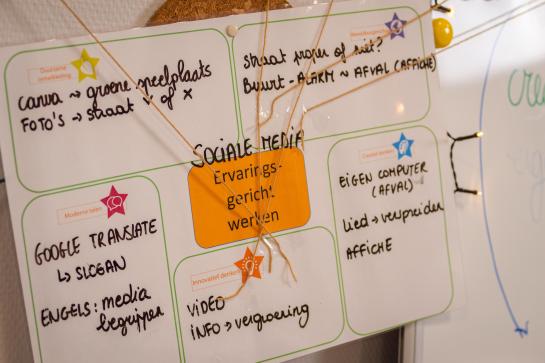 Duurzame
ontwikkeling
Canva → groene speelplaats
FOTO'S → straat ✓ of ✗
straat proper of niet?
Buurt - ALARM ~ AFVAL (AFFICHE)
SOCIALE MEDIA
Ervarings-
gericht
werken
Creatief denken
EIGEN COMPUTER
(AFVAL)
Lied → verspreiden
AFFICHE
Moderne talen
GOOGLE TRANSLATE
↳ SLOGAN
ENGELS: media
begrippen
Innovatief denken
VIDEO
INFO → vergroening